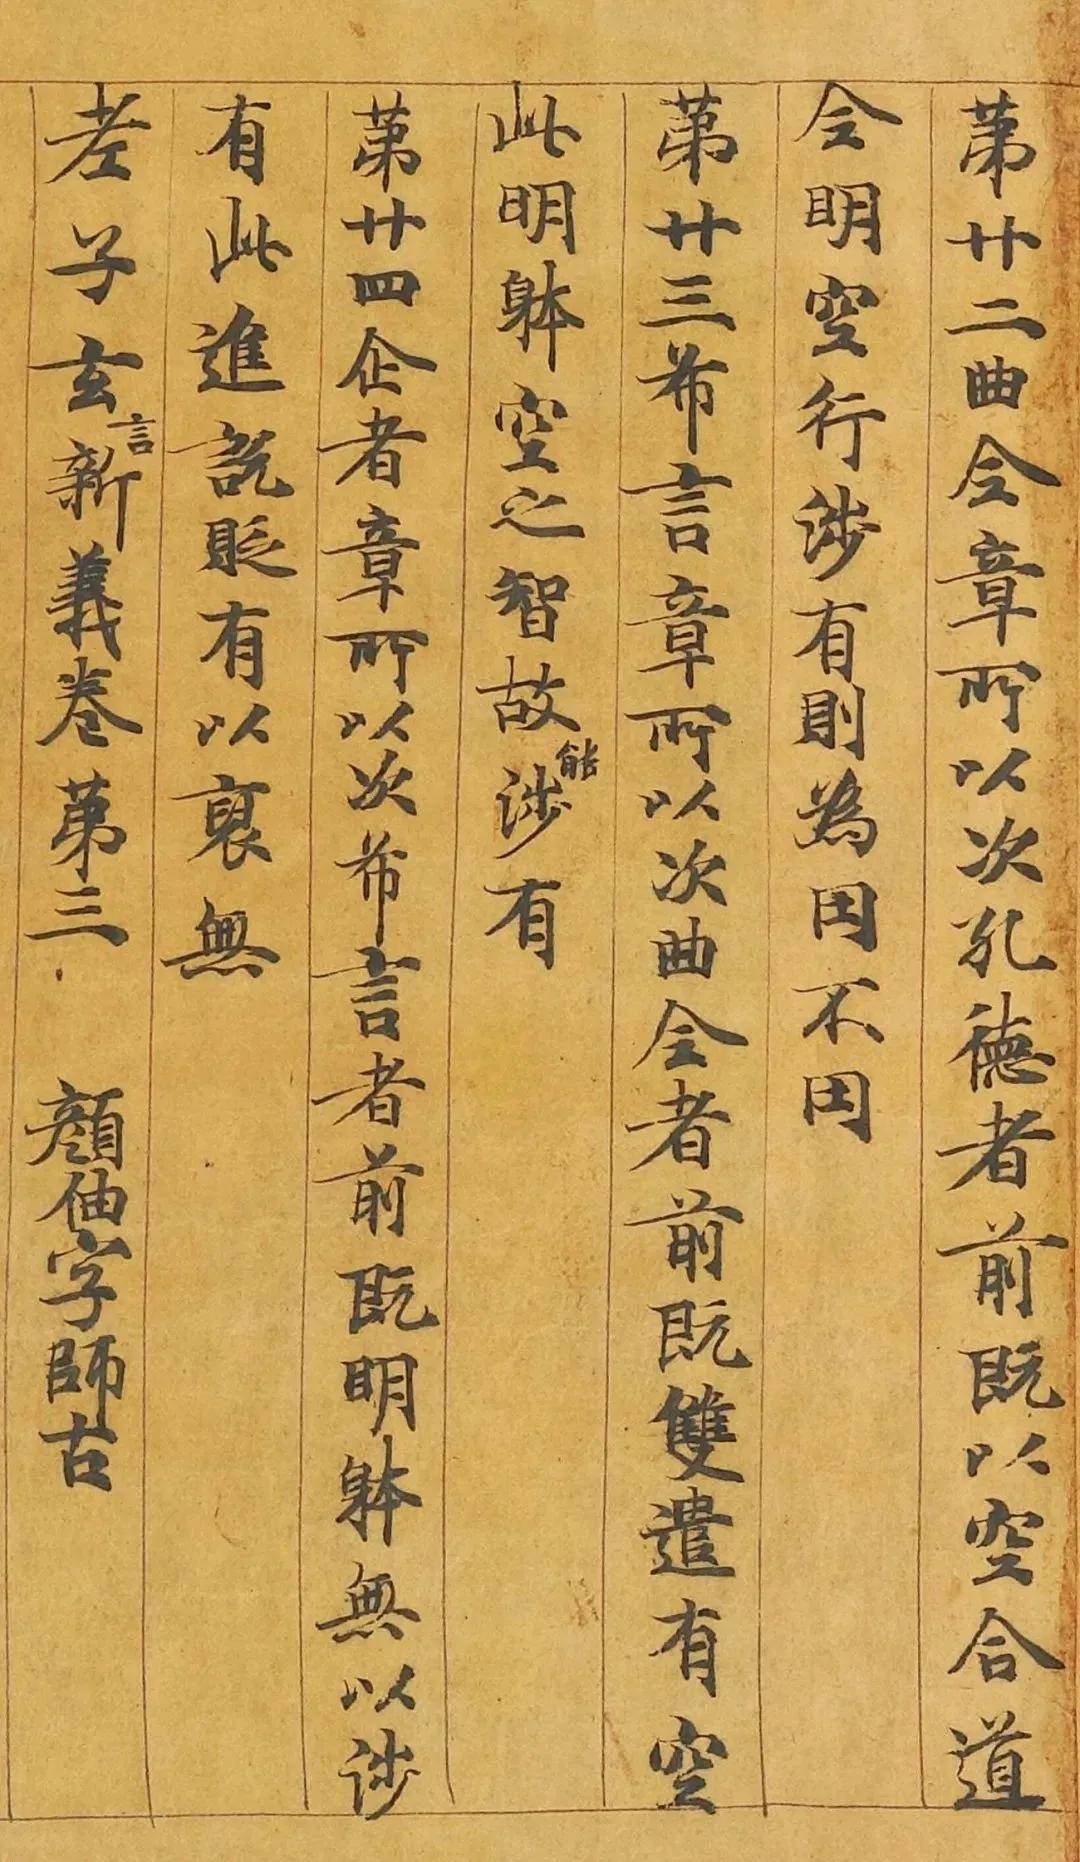 第廿二曲全章所以次孔徳者前既以空合道
今明空行涉有則為因不因
第廿三希言章所以次曲全者前既雙遣有空
此明躰空之智故能涉有
第廿四企者章所以次希言者前既明躰無以涉
有此進説貶有以裒無
老子玄言新義卷第三
顔伷字師古